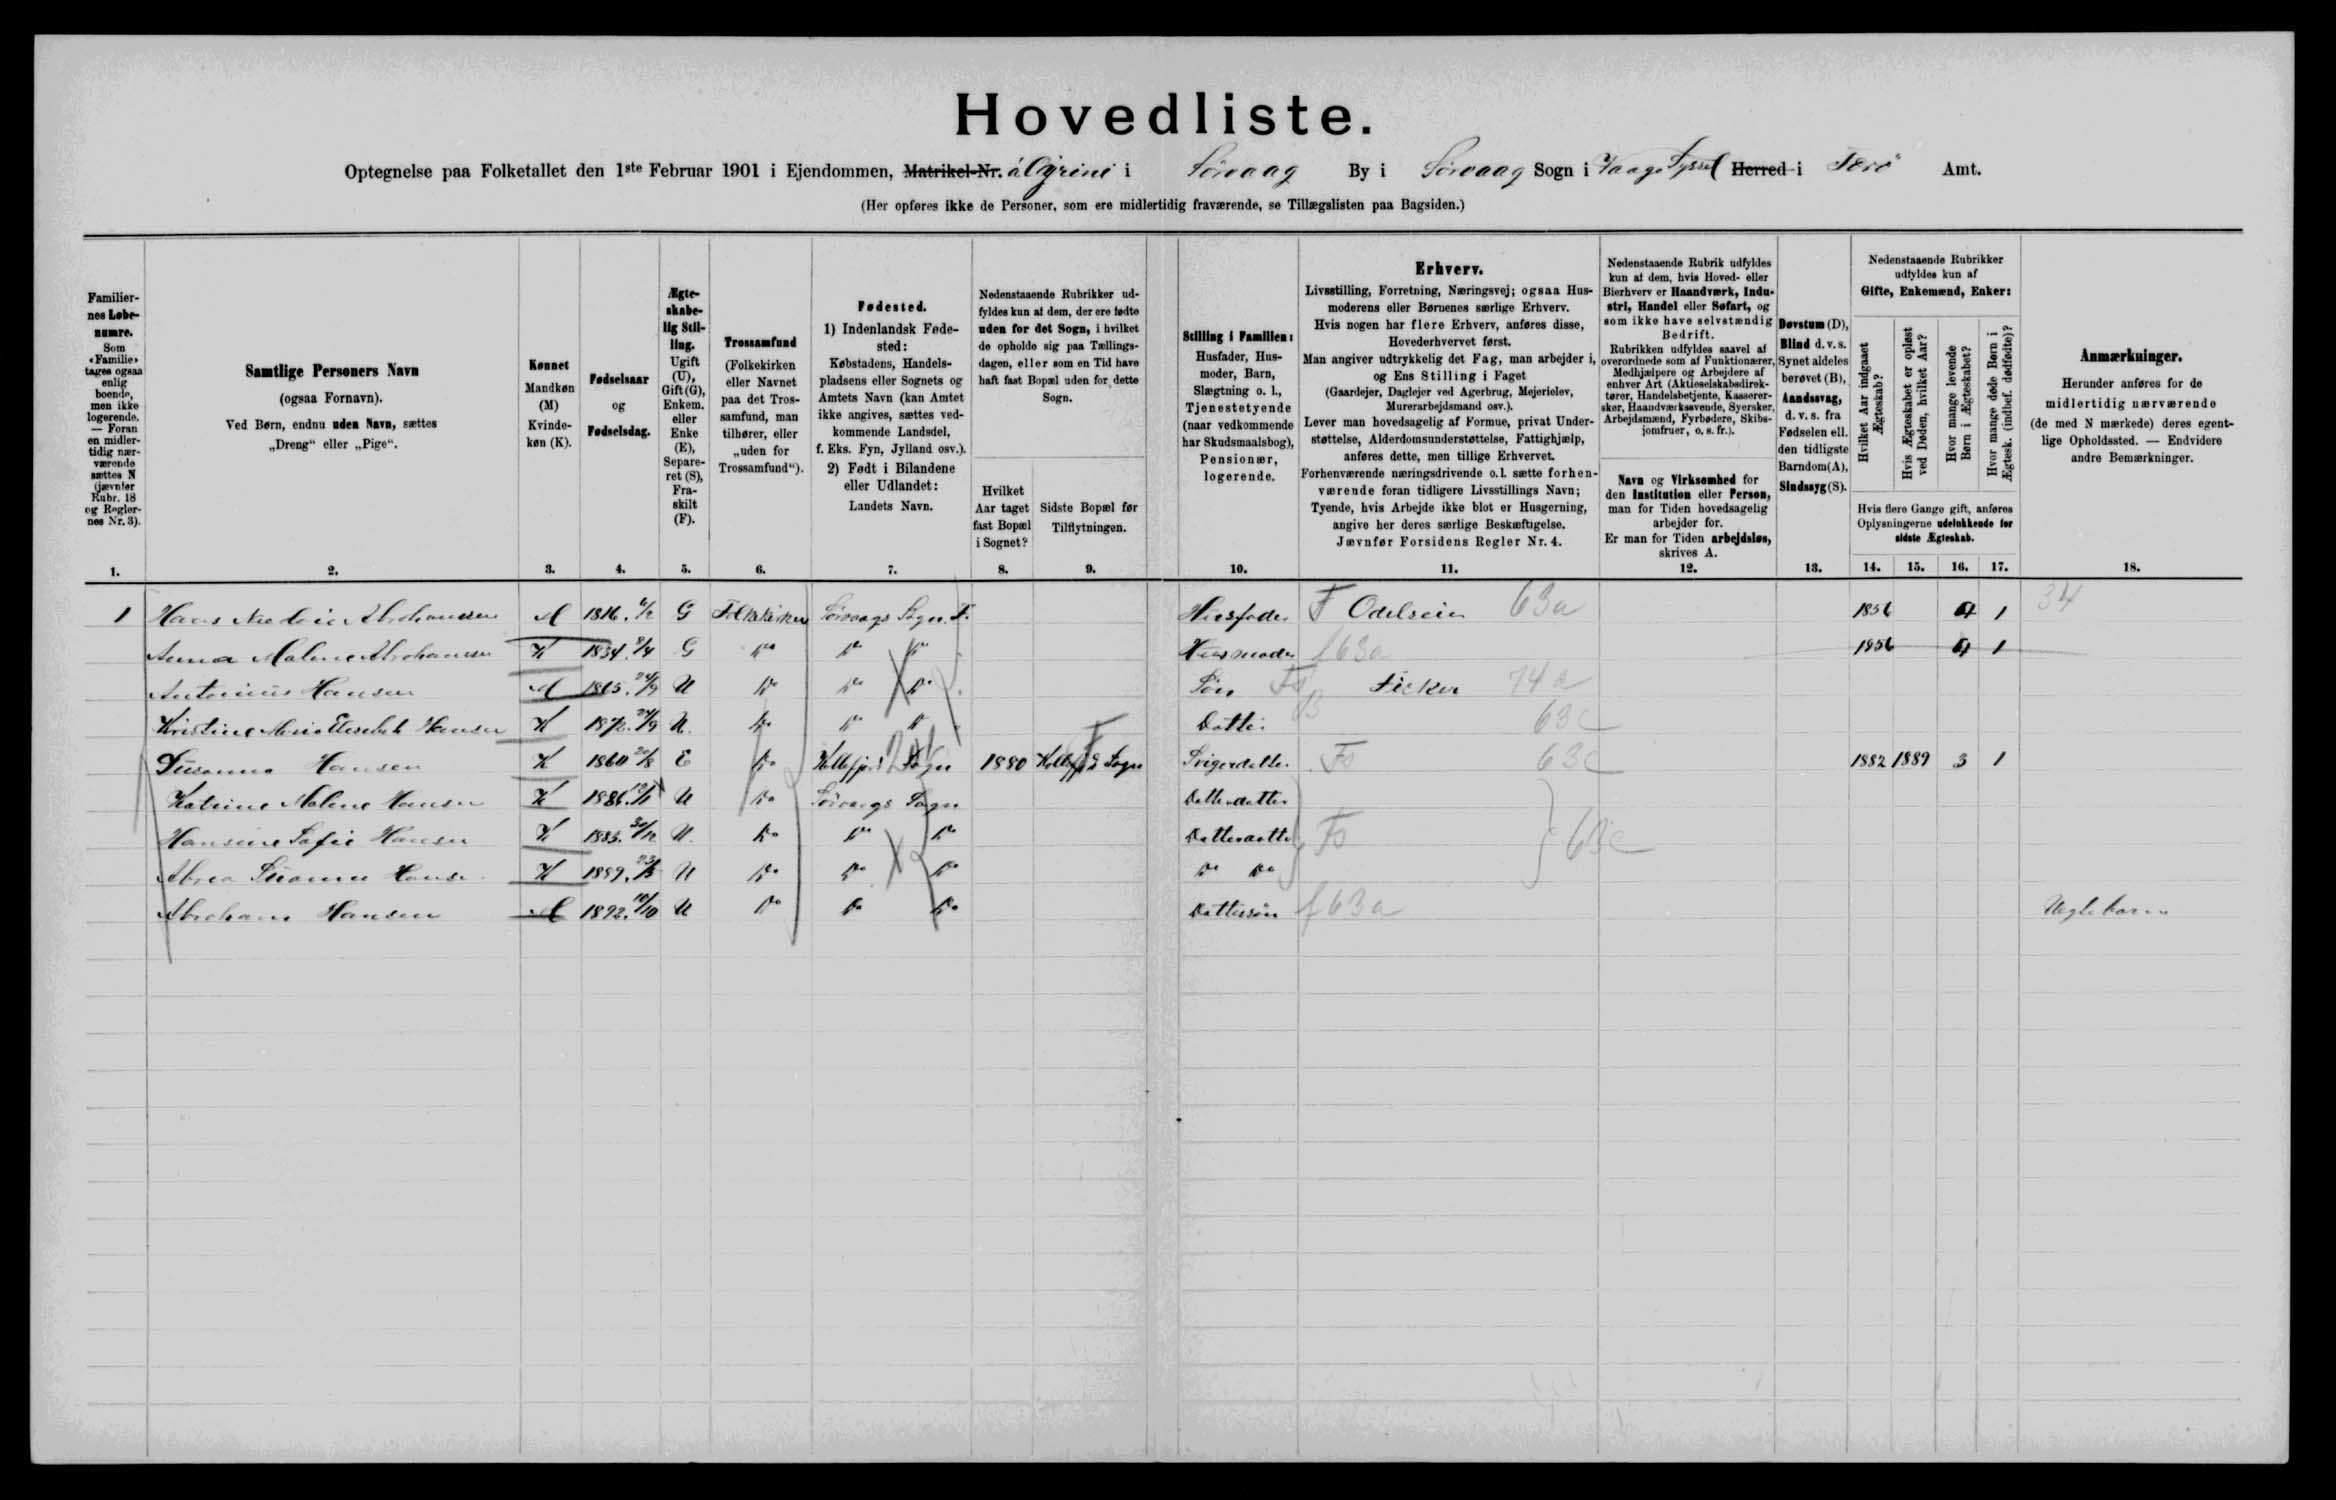 Hovedliste.
Optegnelse paa Folketallet den 1ste Februar 1901 i Ejendommen, Matrikel-Nr. á i Sørvaag By i Sørvaag Sogn i Vaagø Syssel Herred i Færø Amt.
(Her opføres ikke de Personer, som ere midlertidig fraværende, se Tillægslisten paa Bagsiden.)
Familiernes Løbenumre.
Som «Familie» tages ogsaa enlig boende, men ikke logerende. — Foran en midlertidig nærværende sættes N (jævnfør Rubr. 18 og Reglernes Nr. 3).
1.
Samtlige Personers Navn
(ogsaa Fornavn).
Ved Børn, endnu uden Navn, sættes
„Dreng“ eller „Pige“.
2.
Kønnet
Mandkøn (M)
Kvindekøn (K).
3.
Fødselsaar
og
Fødselsdag.
4.
Ægteskabelig Stilling.
Ugift (U), Gift (G), Enkem. eller Enke (E), Separeret (S), Fraskilt (F).
5.
Trossamfund
(Folkekirken eller Navnet paa det Trossamfund, man tilhører, eller „uden for Trossamfund“).
6.
Fødested.
1) Indenlandsk Fødested:
Købstadens, Handelspladsens eller Sognets og Amtets Navn (kan Amtet ikke angives, sættes vedkommende Landsdel, f. Eks. Fyn, Jylland osv.).
2) Født i Bilandene eller Udlandet:
Landets Navn.
7.
Nedenstaaende Rubrikker udfyldes kun af dem, der ere fødte uden for det Sogn, i hvilket de opholde sig paa Tællingsdagen, eller som en Tid have haft fast Bopæl uden for dette Sogn.
Hvilket Aar taget fast Bopæl i Sognet?
8.
Sidste Bopæl før Tilflytningen.
9.
Stilling i Familien:
Husfader, Husmoder, Barn, Slægtning o. l., Tjenestetyende (naar vedkommende har Skudsmaalsbog), Pensionær, logerende.
10.
Erhverv.
Livsstilling, Forretning, Næringsvej; ogsaa Husmoderens eller Børnenes særlige Erhverv.
Hvis nogen har flere Erhverv, anføres disse, Hovederhvervet først.
Man angiver udtrykkelig det Fag, man arbejder i, og Ens Stilling i Faget
(Gaardejer, Daglejer ved Agerbrug, Mejerielev, Murerarbejdsmand osv.).
Lever man hovedsagelig af Formue, privat Understøttelse, Alderdomsunderstøttelse, Fattighjælp, anføres dette, men tillige Erhvervet.
Forhenværende næringsdrivende o. l. sætte forhenværende foran tidligere Livsstillings Navn;
Tyende, hvis Arbejde ikke blot er Husgerning, angive her deres særlige Beskæftigelse.
Jævnfør Forsidens Regler Nr. 4.
11.
Nedenstaaende Rubrik udfyldes kun af dem, hvis Hoved- eller Bierhverv er Haandværk, Industri, Handel eller Søfart, og som ikke have selvstændig Bedrift.
Rubrikken udfyldes saavel af overordnede som af Funktionærer, Medhjælpere og Arbejdere af enhver Art (Aktieselskabsdirektører, Handelsbetjente, Kasserersker, Haandværkssvende, Syersker, Arbejdsmænd, Fyrbødere, Skibsjomfruer, o. s. fr.).
Navn og Virksomhed for den Institution eller Person, man for Tiden hovedsagelig arbejder for.
Er man for Tiden arbejdsløs, skrives A.
12.
Døvstum (D), Blind d. v. s. Synet aldeles berøvet (B), Aandssvag, d. v. s. fra Fødselen ell. den tidligste Barndom (A), Sindssyg (S).
13.
Nedenstaaende Rubrikker udfyldes kun af
Gifte, Enkemænd, Enker:
Hvilket Aar indgaaet Ægteskab?
Hvis Ægteskabet er opløst ved Døden, hvilket Aar?
Hvor mange levende Børn i Ægteskabet?
Hvor mange døde Børn i Ægtesk. (indbef. dødfødte)?
Hvis flere Gange gift, anføres Oplysningerne udelukkende for sidste Ægteskab.
14. 15. 16. 17.
Anmærkninger.
Herunder anføres for de midlertidig nærværende (de med N mærkede) deres egentlige Opholdssted. — Endvidere andre Bemærkninger.
18.
1 Hans Abrahamsen M 1816. G Folkekirken Sørvaags Sogn. F. Husfader F Odelseier 63a 1856 4 1 34
Anna Malene Abrahamsen K 1834. G Do Do Do Husmoder f63a 1856 4 1
Antonius Hansen M 1865. 24/9 U Do Do Do Søn Fisker 74a
Kristine Marie Elisabet Hansen K 1872. 24/9 U. Do Do Do Datter 63c
Susanna Hansen K 1860 E Do Kollefjord Sogn 1880 Kollefjord Sogn Svigerdatter Fo 63c 1882 1889 3 1
Katrine Malene Hansen K 1886. U Do Sørvaags Sogn Datterdatter
Hansine Sofie Hansen K 1883. 30/12 U. Do Do Do Datterdatter Fo 63c
Susanna Hansen K 1889. U Do Do Do Do Do
Abraham Hansen M 1892. 10/10 U Do Do Do Dattersøn f63a